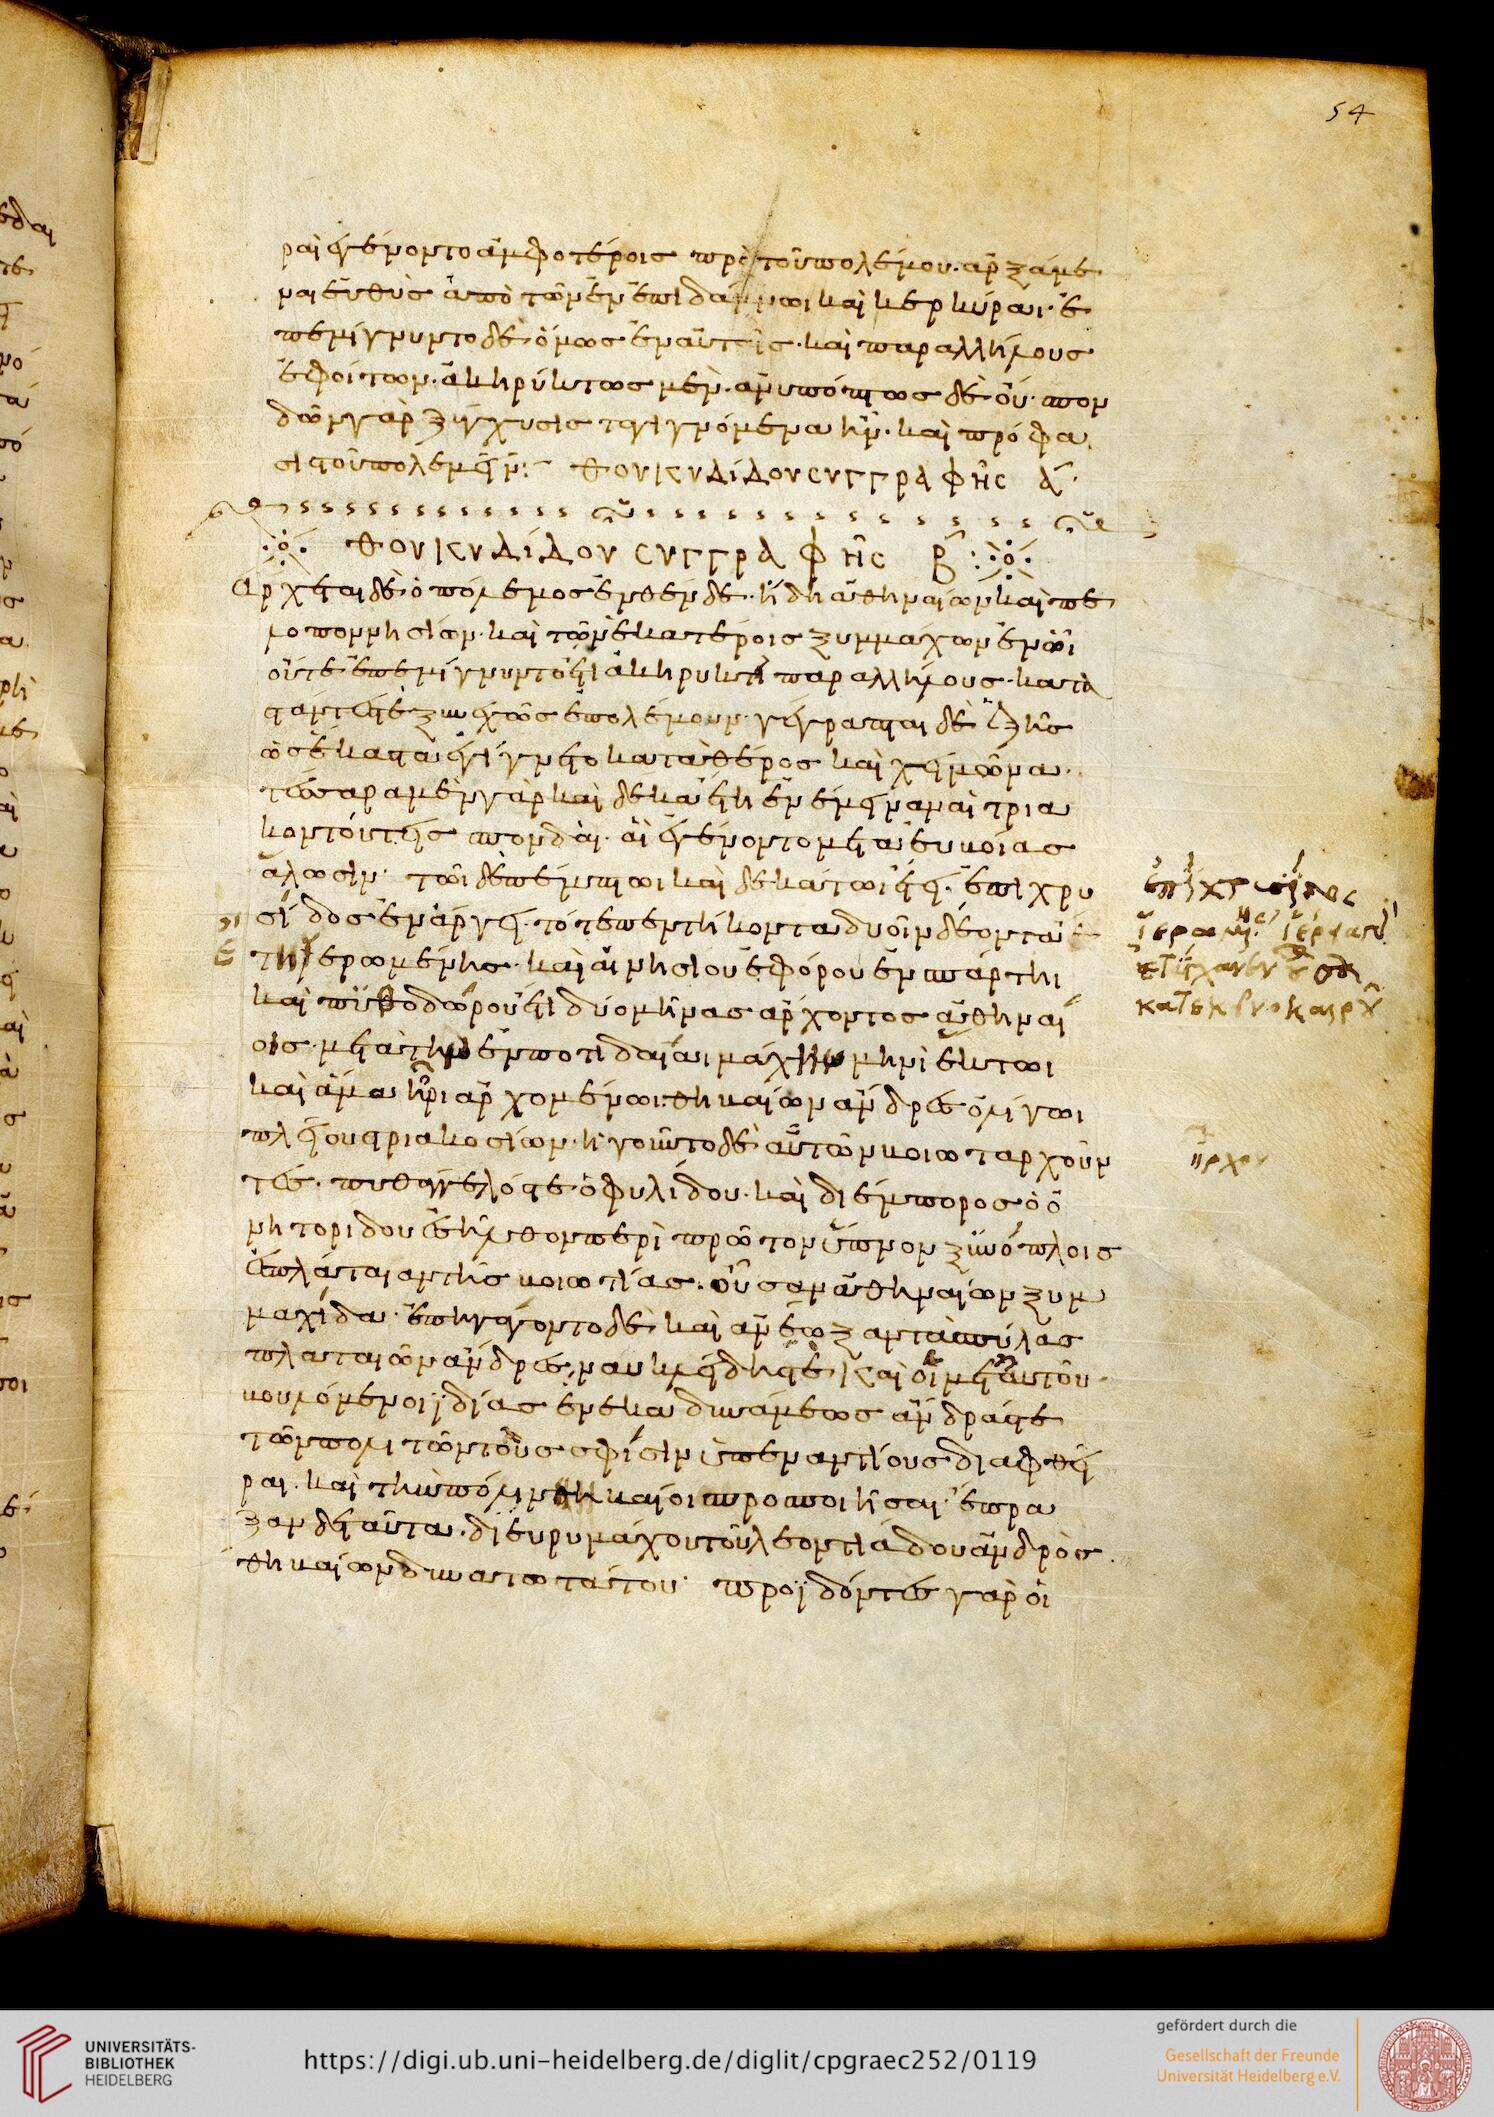 54
ραι ἐγένοντο ἀμφοτέροις πρὸ τοῦ πολέμου· ἀρξάμε
ναι εὐθὺς ἀπὸ τῶν ἐν ἐπιδάμνωι καὶ κερκύραι· ἐ
πεμίγνυντο δὲ ὅμως ἐν αὐταῖς· καὶ παραλλήλους
ἐφοίτων· ἀκηρύκτως μὲν· ἀνυπόπτως δὲ οὔ· σπον
δῶν γὰρ ξύγχυσις τὰ γιγνόμενα ἦν· καὶ πρόφα
σις τοῦ πολεμεῖν: θουκυδίδου συγγραφῆς ά
θουκυδίδου συγγραφῆς β
Ἄρχεται δὲ ὁ πόλεμος ἐνθένδε· ἤδη ἀθηναίων καὶ πε
λοποννησίων· καὶ τῶν ἑκατέροις ξυμμάχων ἐν ὧι
οὔτε ἐπεμίγνυντο ἔτι ἀκηρυκτὶ παραλλήλους· κατα
στάντες τε ξυνεχῶς ἐπολέμουν· γέγραπται δὲ ἑξῆς
ὡς ἕκαστα ἐγίγνετο κατὰ θέρος καὶ χειμῶνα·
τέσσαρα μὲν γὰρ καὶ δέκα ἔτη ἐνέμειναν αἱ τρια
κοντούτεις σπονδαὶ· αἳ ἐγένοντο μετ' εὐβοίας
ἅλωσιν· τῶι δὲ πέμπτωι καὶ δεκάτωι ἔτει· ἐπὶ χρυ
σίδος ἐν ἄργει· τότε πεντήκοντα δυοῖν δέοντα ἔ
τη ἱερωμένης· καὶ αἰνησίου ἐφόρου ἐν σπάρτηι
καὶ πυθοδώρου ἔτι δύο μῆνας ἄρχοντος ἀθηναί
οις· μετὰ τὴν ἐν ποτιδαίαι μάχην μηνὶ ἕκτωι
καὶ ἅμα ἦρι ἀρχομένωι· θηβαίων ἄνδρες ὀλίγωι
πλείους τριακοσίων· ἡγοῦντο δὲ αὐτῶν βοιωταρχοῦν
τες· πυθάγγελός τε ὁ φυλίδου· καὶ διέμπορος ὁ ὀ
νητορίδου ἐσῆλθον περὶ πρῶτον ὕπνον ξὺν ὅπλοις
ἐς πλάταιαν τῆς βοιωτίας· οὖσαν ἀθηναίων ξυμ
μαχίδα· ἐπηγάγοντο δὲ καὶ ἀνέωξαν τὰς πύλας
πλαταιῶν ἄνδρες, ναυκλείδης τε καὶ οἱ μετ' αὐτοῦ·
βουλόμενοι ἰδίας ἕνεκα δυνάμεως ἄνδρας τε
τῶν πολιτῶν τοὺς σφίσιν ὑπεναντίους διαφθεῖ
ραι· καὶ τὴν πόλιν θηβαίοις προσποιῆσαι· ἔπρα
ξαν δὲ ταῦτα· δι' εὐρυμάχου τοῦ λεοντιάδου ἀνδρὸς
θηβαίων δυνατωτάτου· προϊδόντες γὰρ οἱ
UNIVERSITÄTS-
BIBLIOTHEK
HEIDELBERG
https://digi.ub.uni-heidelberg.de/diglit/cpgraec252/0119
gefördert durch die
Gesellschaft der Freunde
Universität Heidelberg e.V.